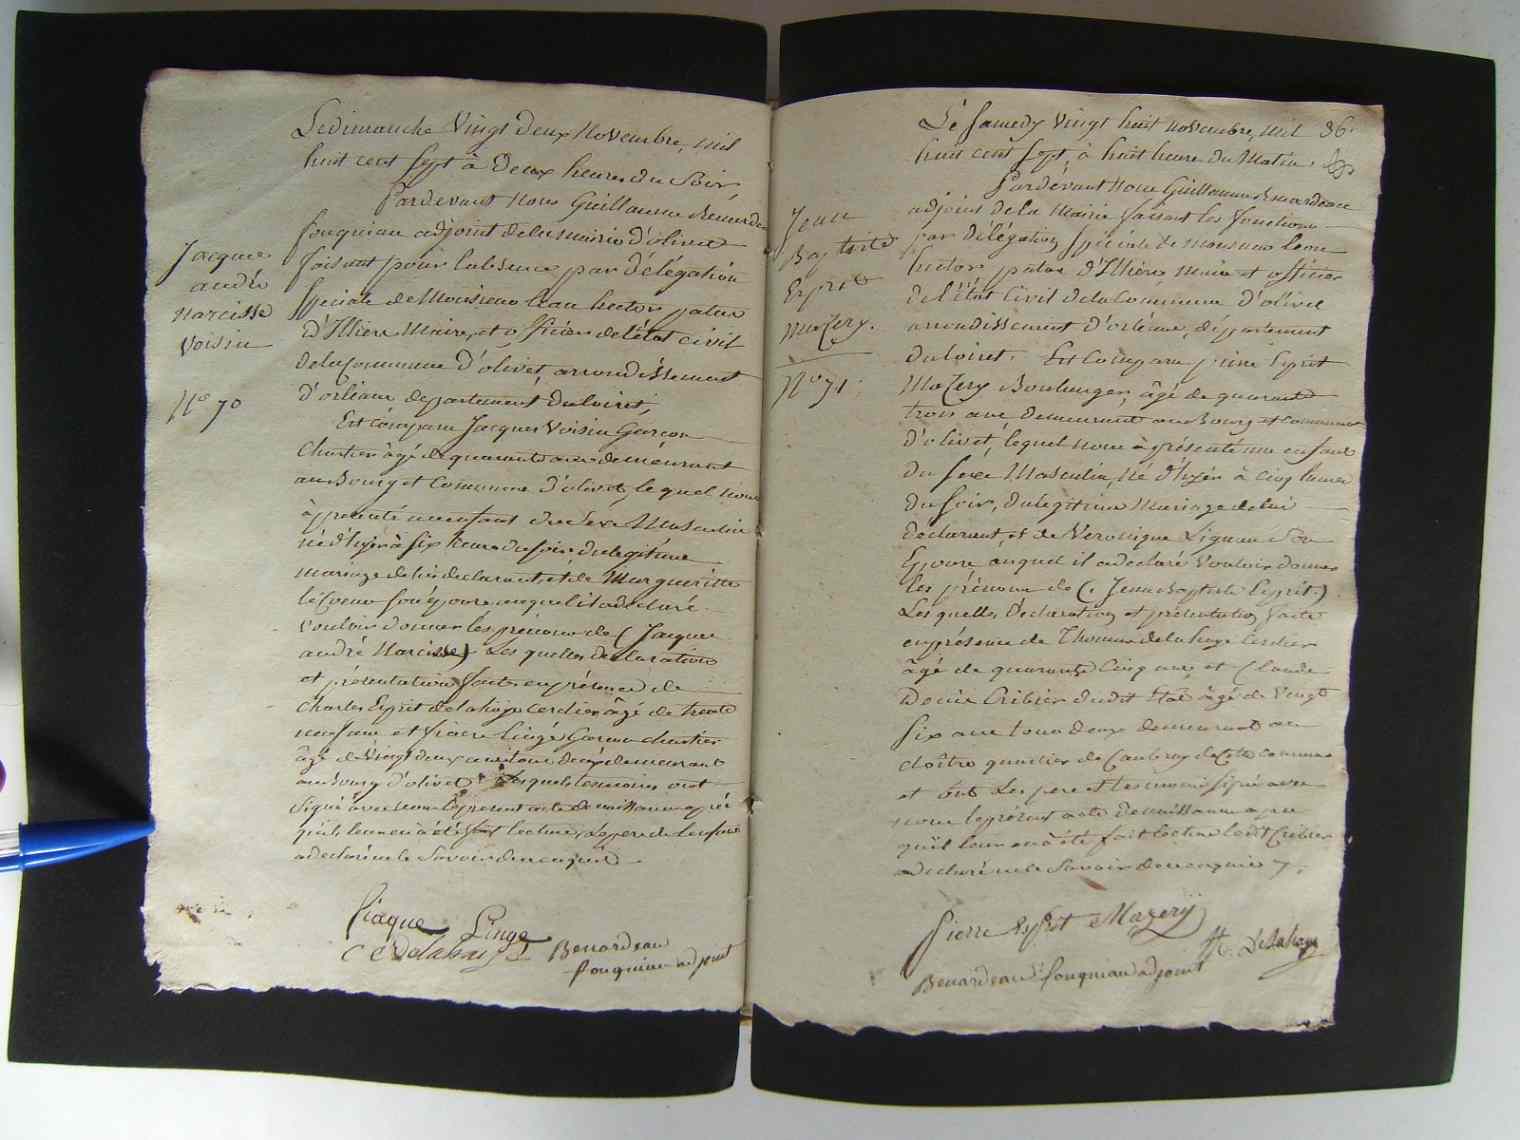 Le dimanche Vingt deux Novembre, mil
huit cent sept à deux heures du Soir,
Pardevant nous Guillaume Benardeau
fouquiau adjoint de la mairie d'olivet
faisant pour l'absence par délégation
Spéciale de Monsieur leon hector patas
D'Illiers Maire, et officier de l'état civil
de la Commune D'olivet, arrondissement
D'orléans departement du loiret,
Jacques
andré
narcisse
voisin
N° 70
Est Comparu Jacques Voisin Garçon
Chartier âgé de quarante ans demeurant
au Bourg et Commune D'olivet, lequel nous
à présenté un enfant du Sexe Masculin
né d'hyer à six heures du soir du legitime
mariage de lui declarant, et de Margueritte
Son épouse auquel il a declaré
vouloir donner les prénoms de ( Jacques
andré Narcisse) Les quelles déclaration
et présentation faites en présence de
Charles Esprit Delahaye Cerclier âgé de trente
neuf ans et fiacre Lingé Garçon chartier
âgé de Vingt deux ans tous deux demeurant
au Bourg d'olivet Lesquels temoins ont
Signé avec nous le présent acte de naissance après
qu'il leur en à été fait lecture, Le pere de l'enfant
a declaré ne le Savoir de ce enquis
fiaque Linge
C E Delahaye
Benardeau
fouquiau adjoint
Le Samedy vingt huit novembre, mil 86.
huit cent sept, à huit heure du Matin,
Pardevant Nous Guillaume Benardeau
adjoint de la Mairie faisant les fonctions
par délégation Spéciale de Monsieur leon
hector patas D'Illiers Maire et officier
de l'état Civil de la Commune D'olivet
arrondissement D'orléans, département
du loiret. Est Comparu pierre Esprit
Mazery Boulanger, âgé de quarante
trois ans demeurant au Bourg et commune
D'olivet, lequel nous à présenté un enfant
du sexe Masculin, Né d'hyer à cinq heures
du Soir, du legitime Mariage de lui
declarant, et de Veronique Ligneau Son
Epouse auquel il a declaré Vouloir donner
les prénoms de ( Jean Baptiste Esprit)
Jean
Baptiste
Esprit
Mazery.
N° 71.
Les quelles Déclaration et présentation faite
en présence de Thomas delahaye Cerclier
âgé de quarante Cinq ans et Claude
Cribier dudit Etat âgé de Vingt
Six ans tous deux demeurant au
cloître quartier de Caubray de cette commune
et ont Les pere et temoins signé avec
nous le présent acte de naissance après
qu'il leur en à été fait lecture ledit Cribier
a declaré ne le Savoir de ce enquis
Pierre Esprit Mazery
Delahaye
Benardeau fouquiau adjoint